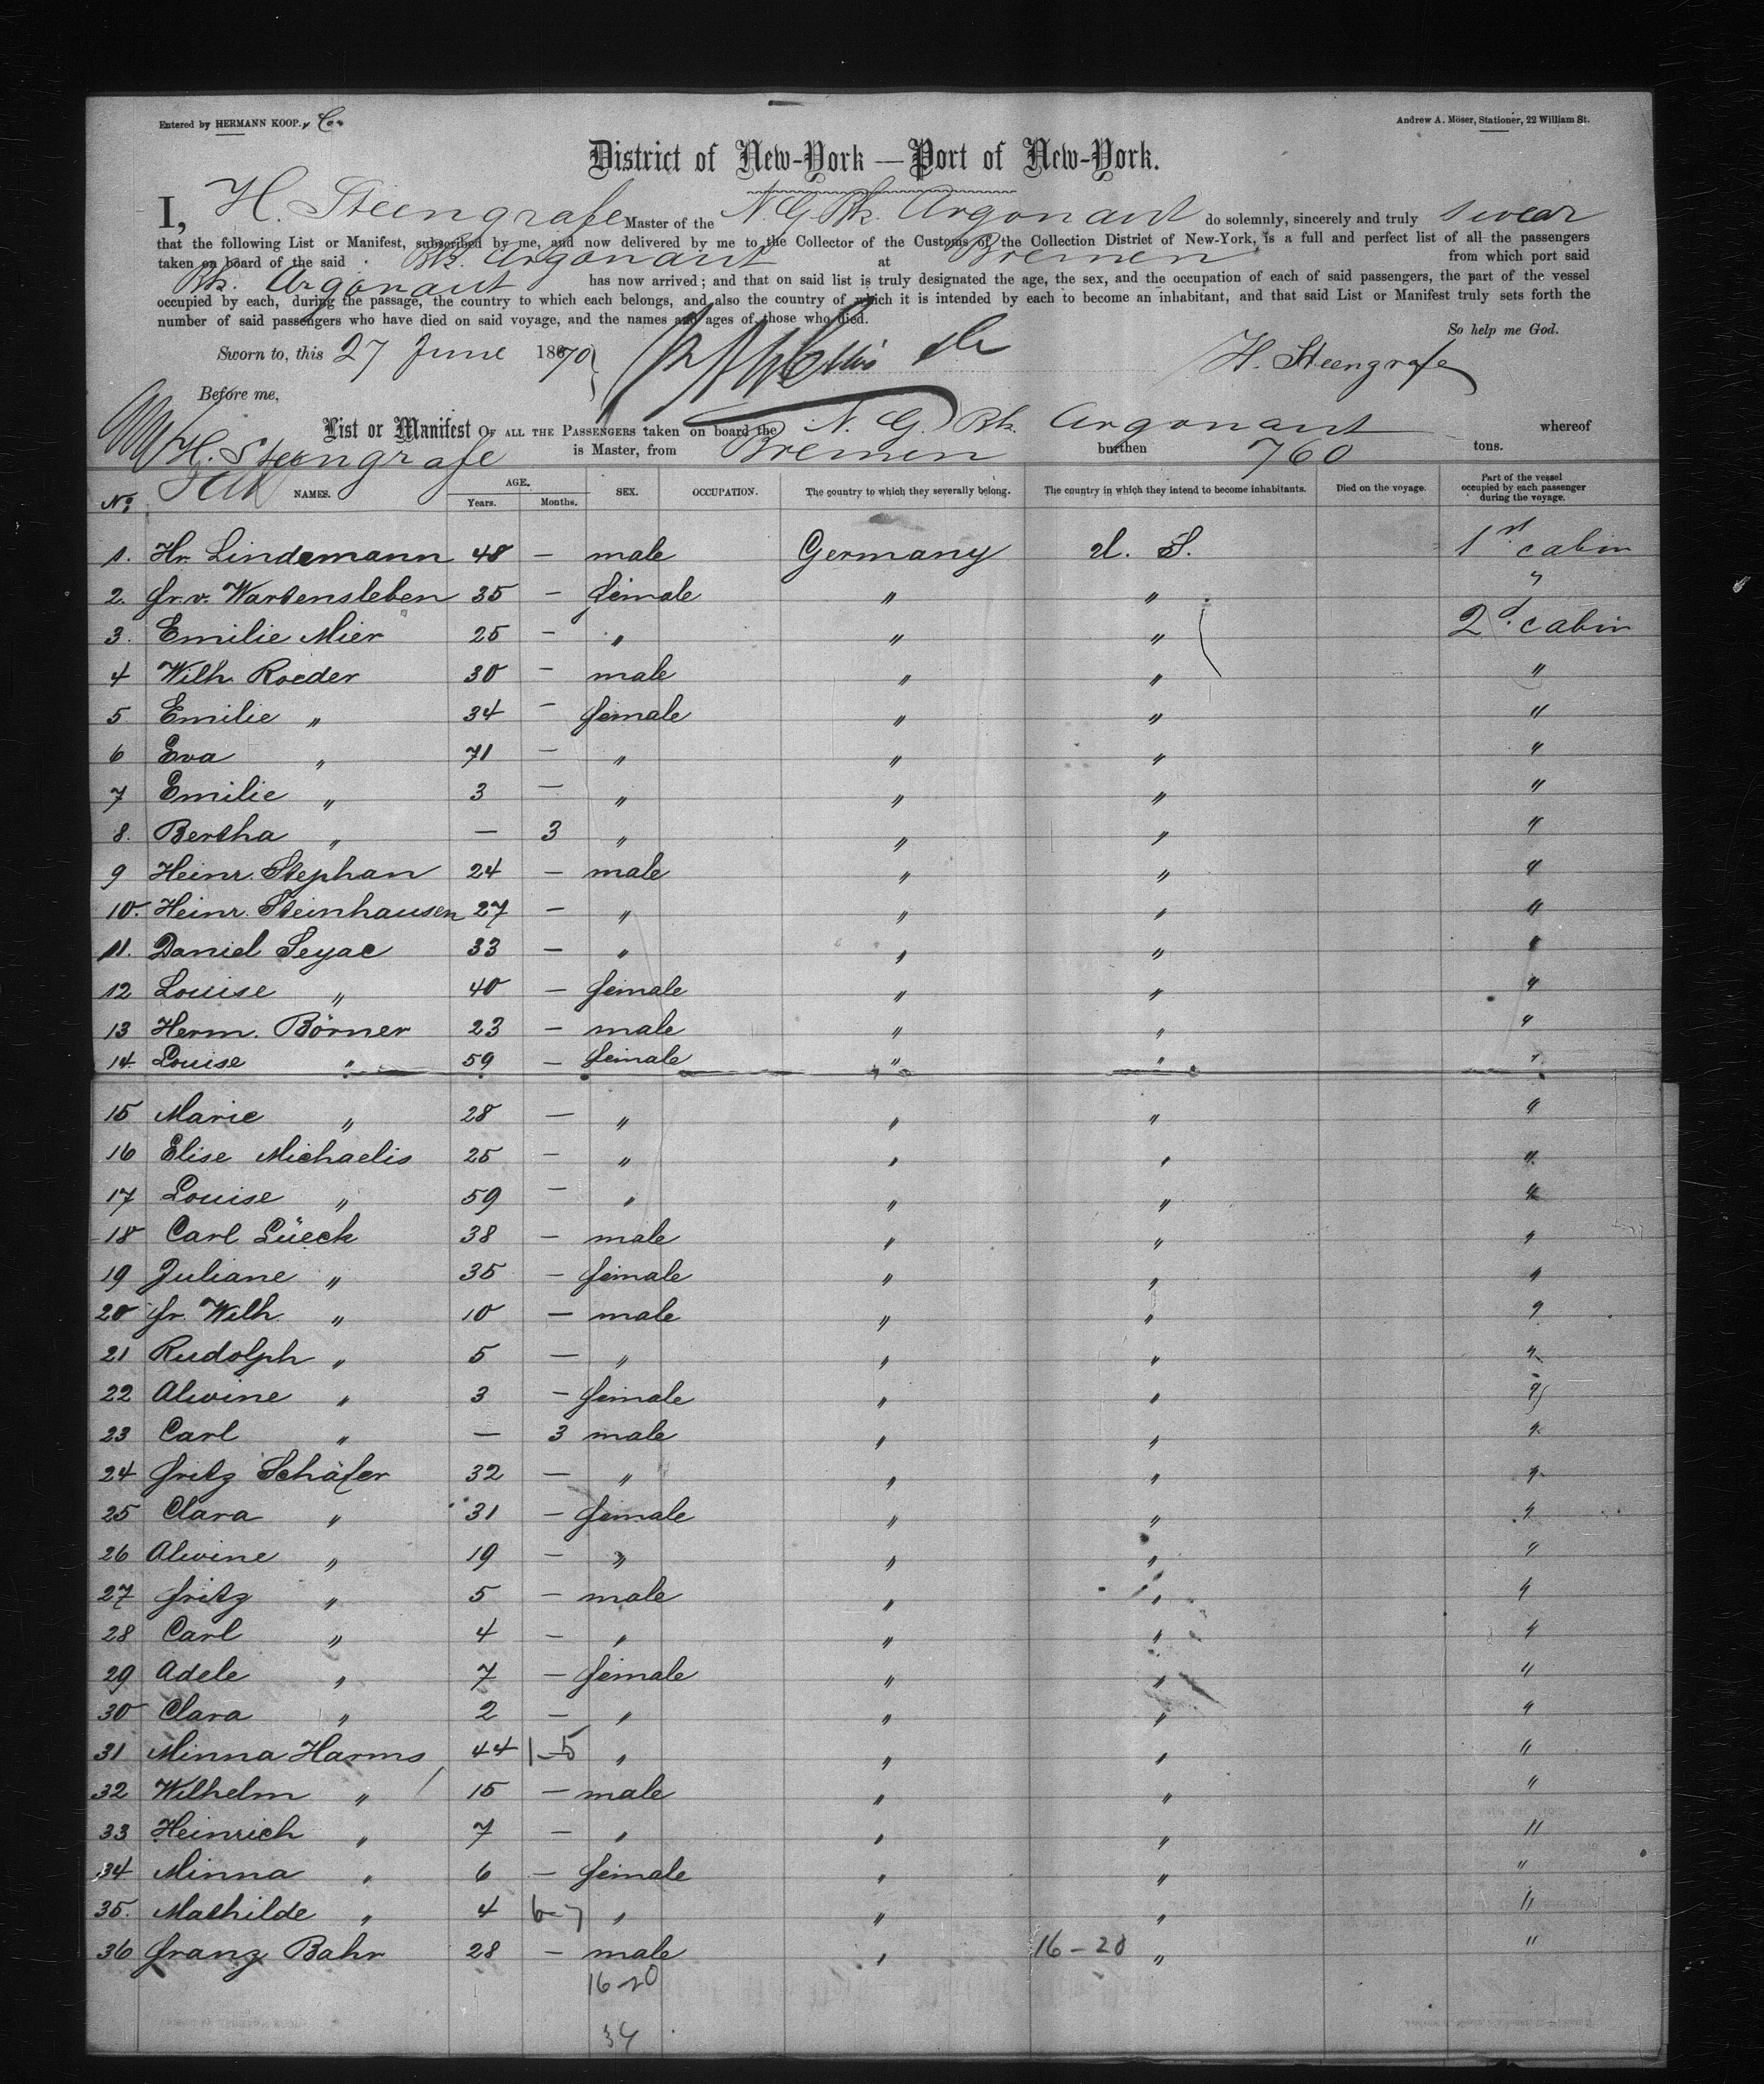 Entered by HERMANN KOOP. & Co.
Andrew A. Moser, Stationer, 22 William St.
District of New-York — Port of New-York.
I, H. Steengrafe Master of the N. G. Bk. Argonaut do solemnly, sincerely and truly swear
that the following List or Manifest, subscribed by me, and now delivered by me to the Collector of the Customs of the Collection District of New-York, is a full and perfect list of all the passengers
taken on board of the said Bk. Argonaut at Bremen from which port said
Bk. Argonaut has now arrived; and that on said list is truly designated the age, the sex, and the occupation of each of said passengers, the part of the vessel
occupied by each, during the passage, the country to which each belongs, and also the country of which it is intended by each to become an inhabitant, and that said List or Manifest truly sets forth the
number of said passengers who have died on said voyage, and the names and ages of those who died.
So help me God.
Sworn to, this 27 June 1870
H. Steengrafe
Before me,
List or Manifest OF ALL THE PASSENGERS taken on board the N. G. Bk. Argonaut whereof
H. Steengrafe is Master, from Bremen burthen 760 tons.
No. NAMES. AGE. Years. Months. SEX. OCCUPATION. The country to which they severally belong. The country in which they intend to become inhabitants. Died on the voyage. Part of the vessel occupied by each passenger during the voyage.
1. Hr. Lindemann 48 — male Germany U. S. 1st cabin
2. Fr. v. Wartensleben 35 — female " " "
3. Emilie Mier 25 — " " " 2d. cabin
4 Wilh. Roeder 30 — male " " "
5 Emilie " 34 — female " " "
6 Eva " 71 — " " " "
7 Emilie " 3 — " " " "
8. Bertha " — 3 " " " "
9 Heinr. Stephan 24 — male " " "
10. Heinr. Steinhausen 27 — " " " "
11. Daniel Seyac 33 — " " " "
12 Louise " 40 — female " " "
13 Herm. Börner 23 — male " " "
14 Louise " 59 — female " " "
15 Marie " 28 — " " " "
16 Elise Michaelis 25 — " " " "
17 Louise " 59 — " " " "
18 Carl Lüeck 38 — male " " "
19 Juliane " 35 — female " " "
20 Fr. Wilh. " 10 — male " " "
21 Rudolph " 5 — " " " "
22 Alwine " 3 — female " " "
23 Carl " — 3 male " " "
24 Fritz Schäfer 32 — " " " "
25 Clara " 31 — female " " "
26 Alwine " 19 — " " " "
27 Fritz " 5 — male " " "
28 Carl " 4 — " " " "
29 Adele " 7 — female " " "
30 Clara " 2 — " " " "
31 Minna Harms 44 1-5 " " " "
32 Wilhelm " 15 — male " " "
33 Heinrich " 7 — " " " "
34 Minna " 6 — female " " "
35. Mathilde " 4 6-7 " " " "
36 Franz Bahr 28 — male " 16-20 " "
16-20
34